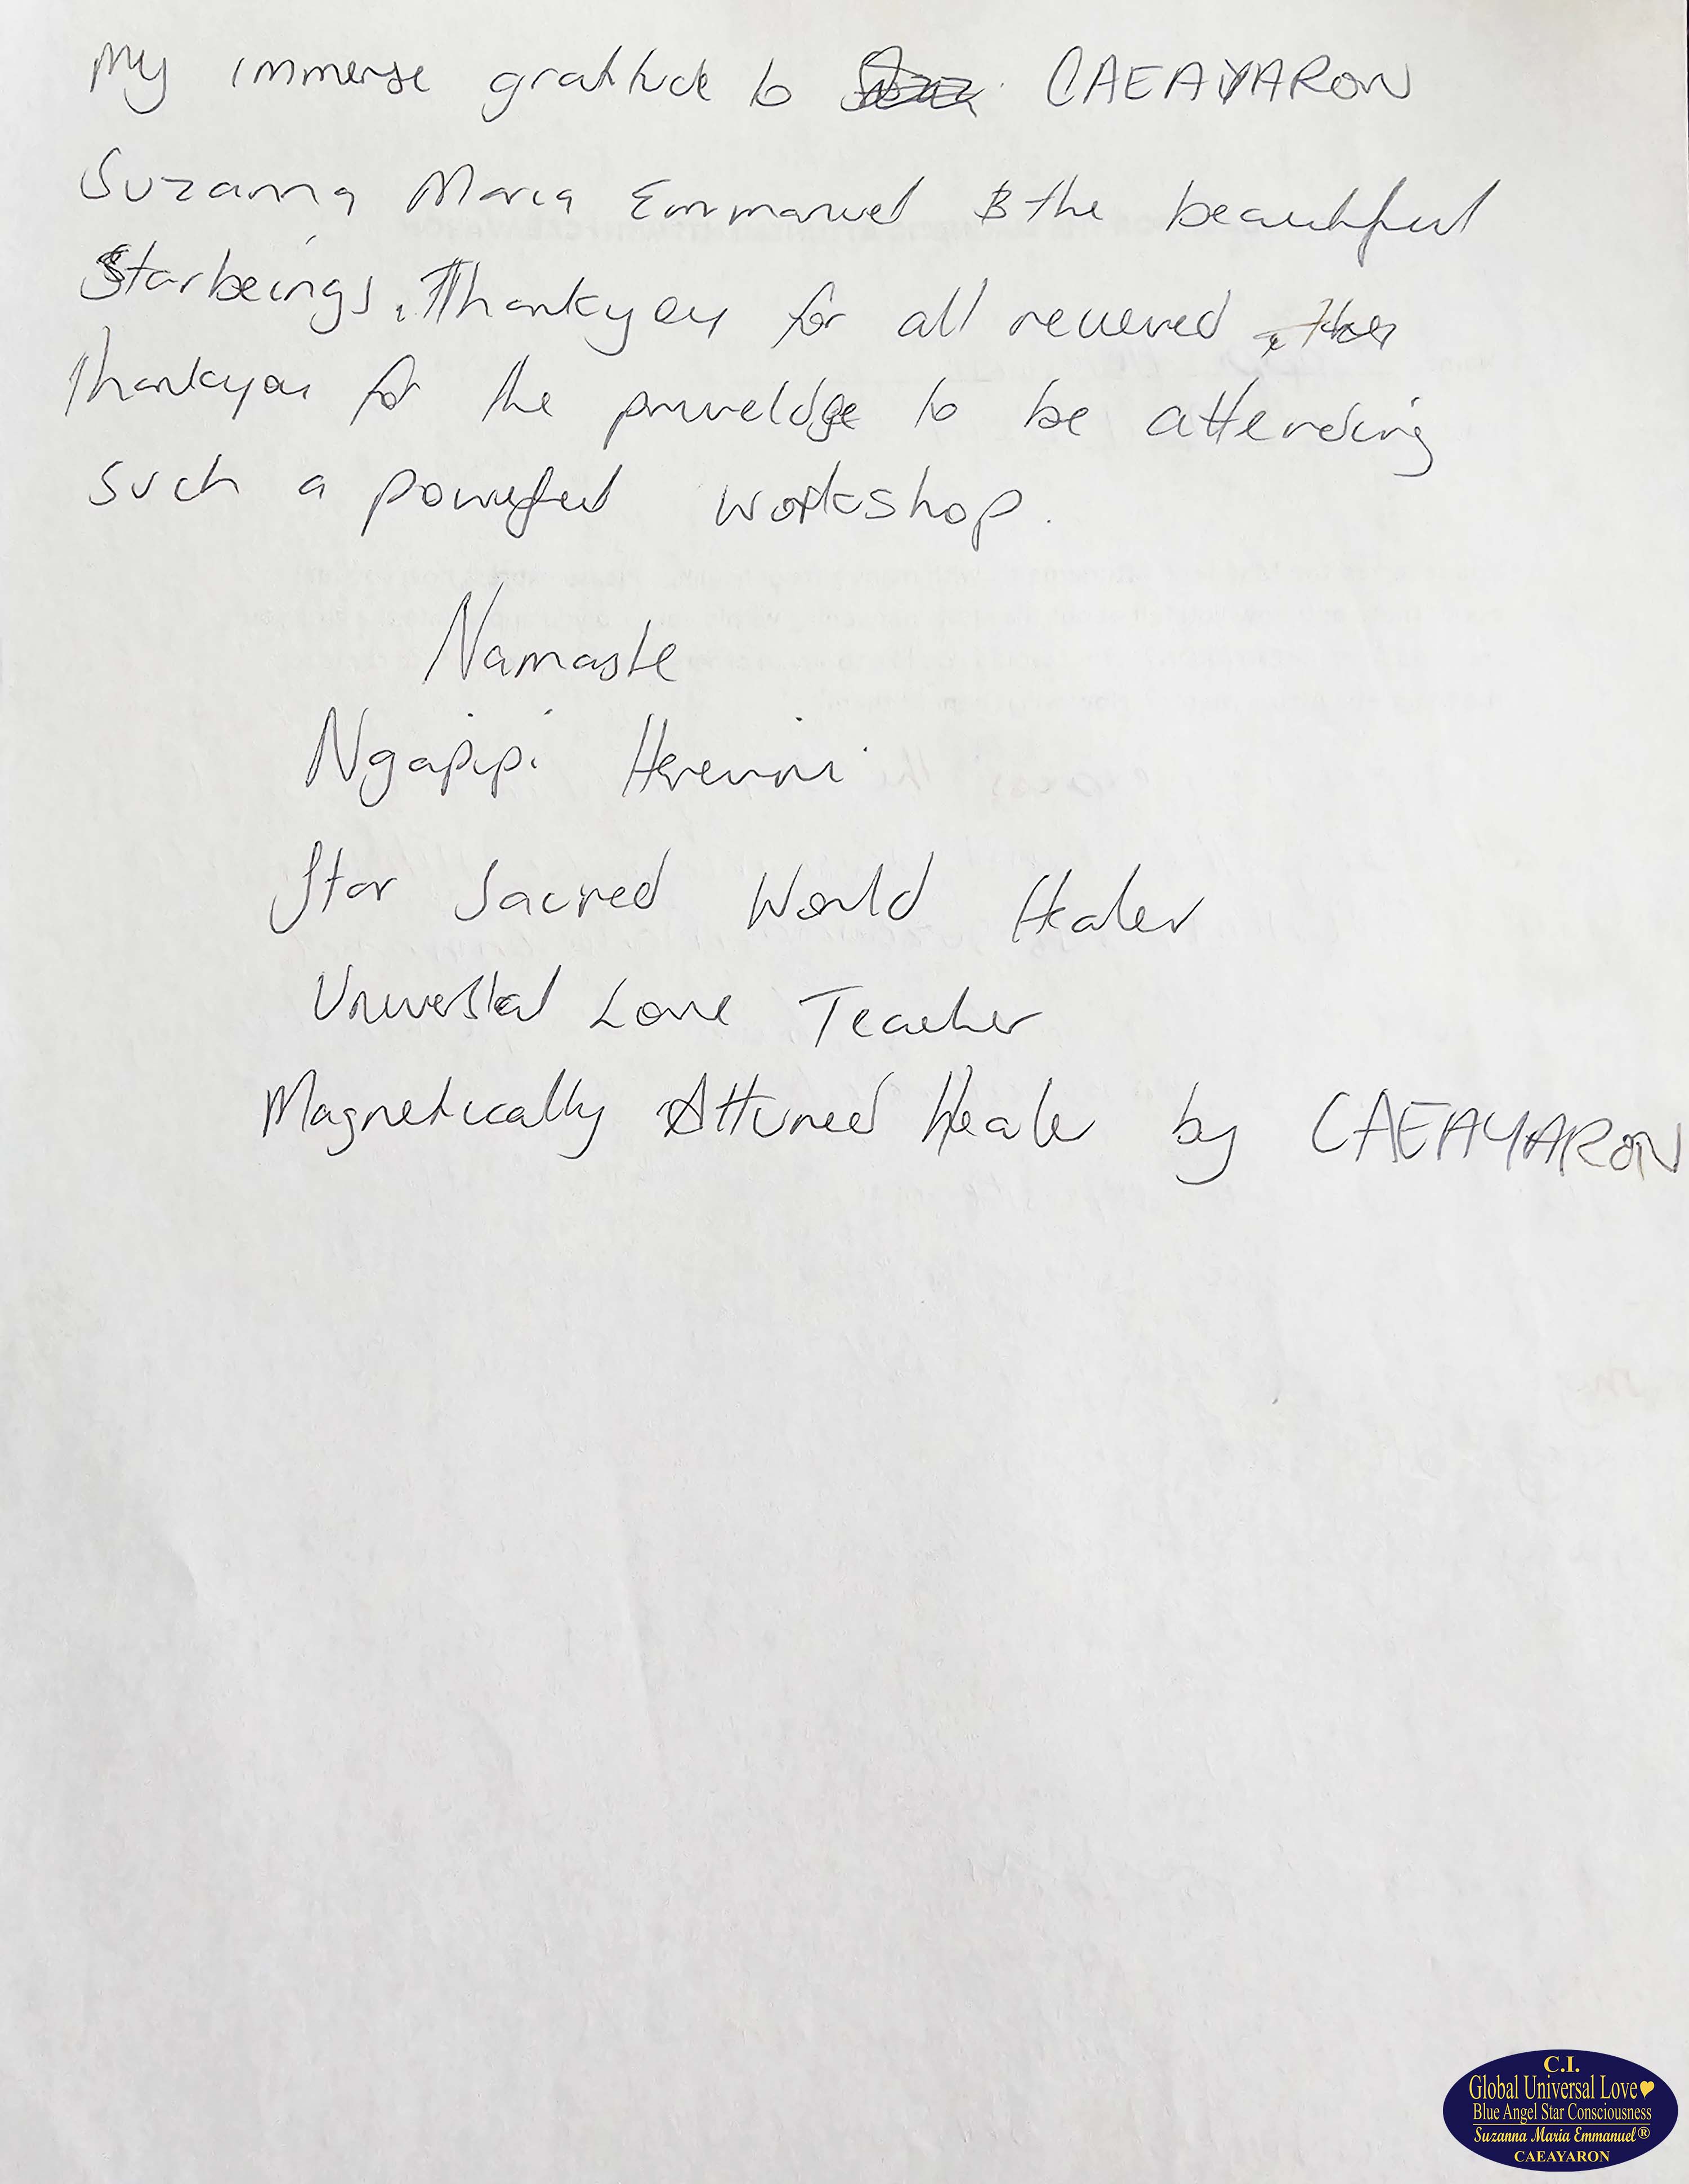 My immense gratitude to CAEAYARON
Suzanna Maria Emmanuel & the beautiful
Starbeings. Thankyou for all received
Thankyou for the priveldge to be attending
such a powerful workshop.
Namaste
Ngapipi Herewini
Star Sacred World Healer
Universal Love Teacher
Magnetically Attuned Healer by CAEAYARON
C.I.
Global Universal Love
Blue Angel Star Consciousness
Suzanna Maria Emmanuel®
CAEAYARON